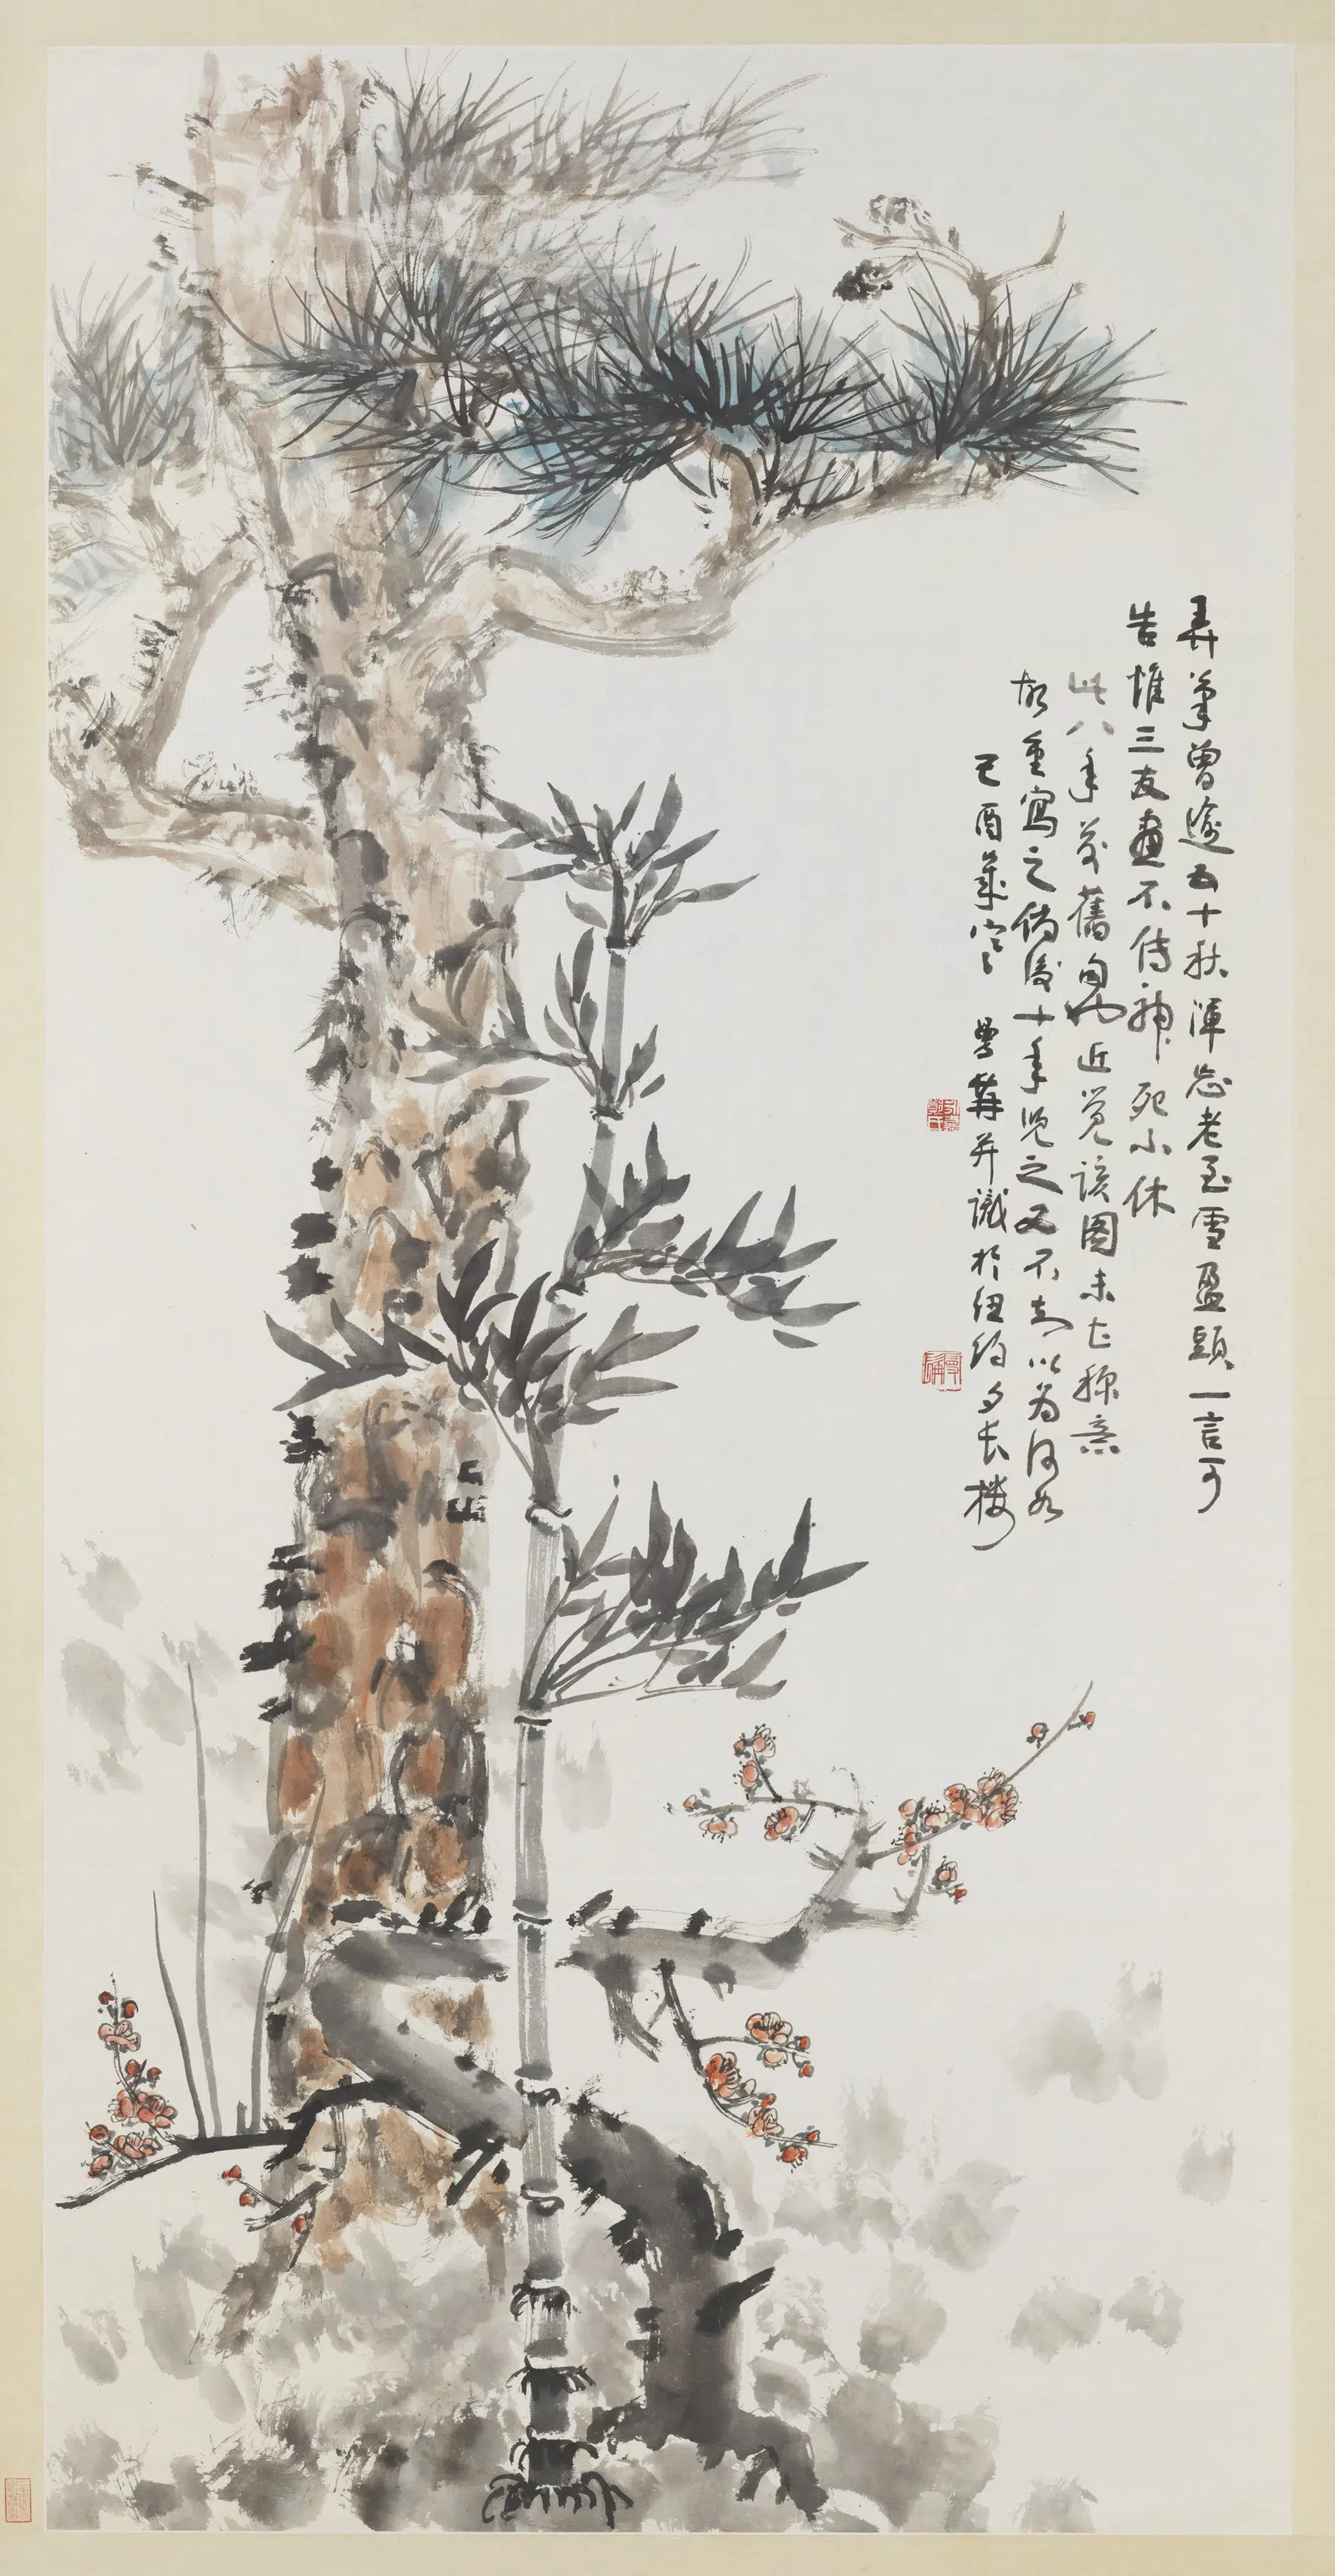 弄筆曾逾五十秋渾忘老至雪盈頭一言可
告惟三友畫不傳神死不休
此八年前舊句也近覺該圖未亡稱意
故重寫之倘後十年児之又不知以為何如
己酉歲寒 曼髯并識於紐約夕長樓